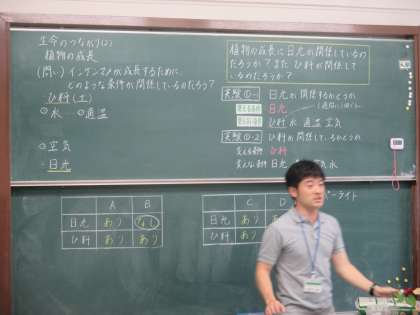 生命のつながり(2)
植物の成長
(問い) インゲンマメが成長するために、
どのような条件が関係しているのだろう?
ひ料(土)
水 適温
空気
日光
植物の成長に日光が関係しているの
だろうか? また ひ料が関係して
いるのだろうか?
実験①-1 日光が関係するか
変える条件 日光
ひ料 水 適温 空気
実験①-2 ひ料が関係しているかどうか
変える条件 ひ料
変えない条件 日光 気 水
A B
日光 あり なし
ひ料 あり あり
C D
日光 あり
ひ料 あり
ーライト